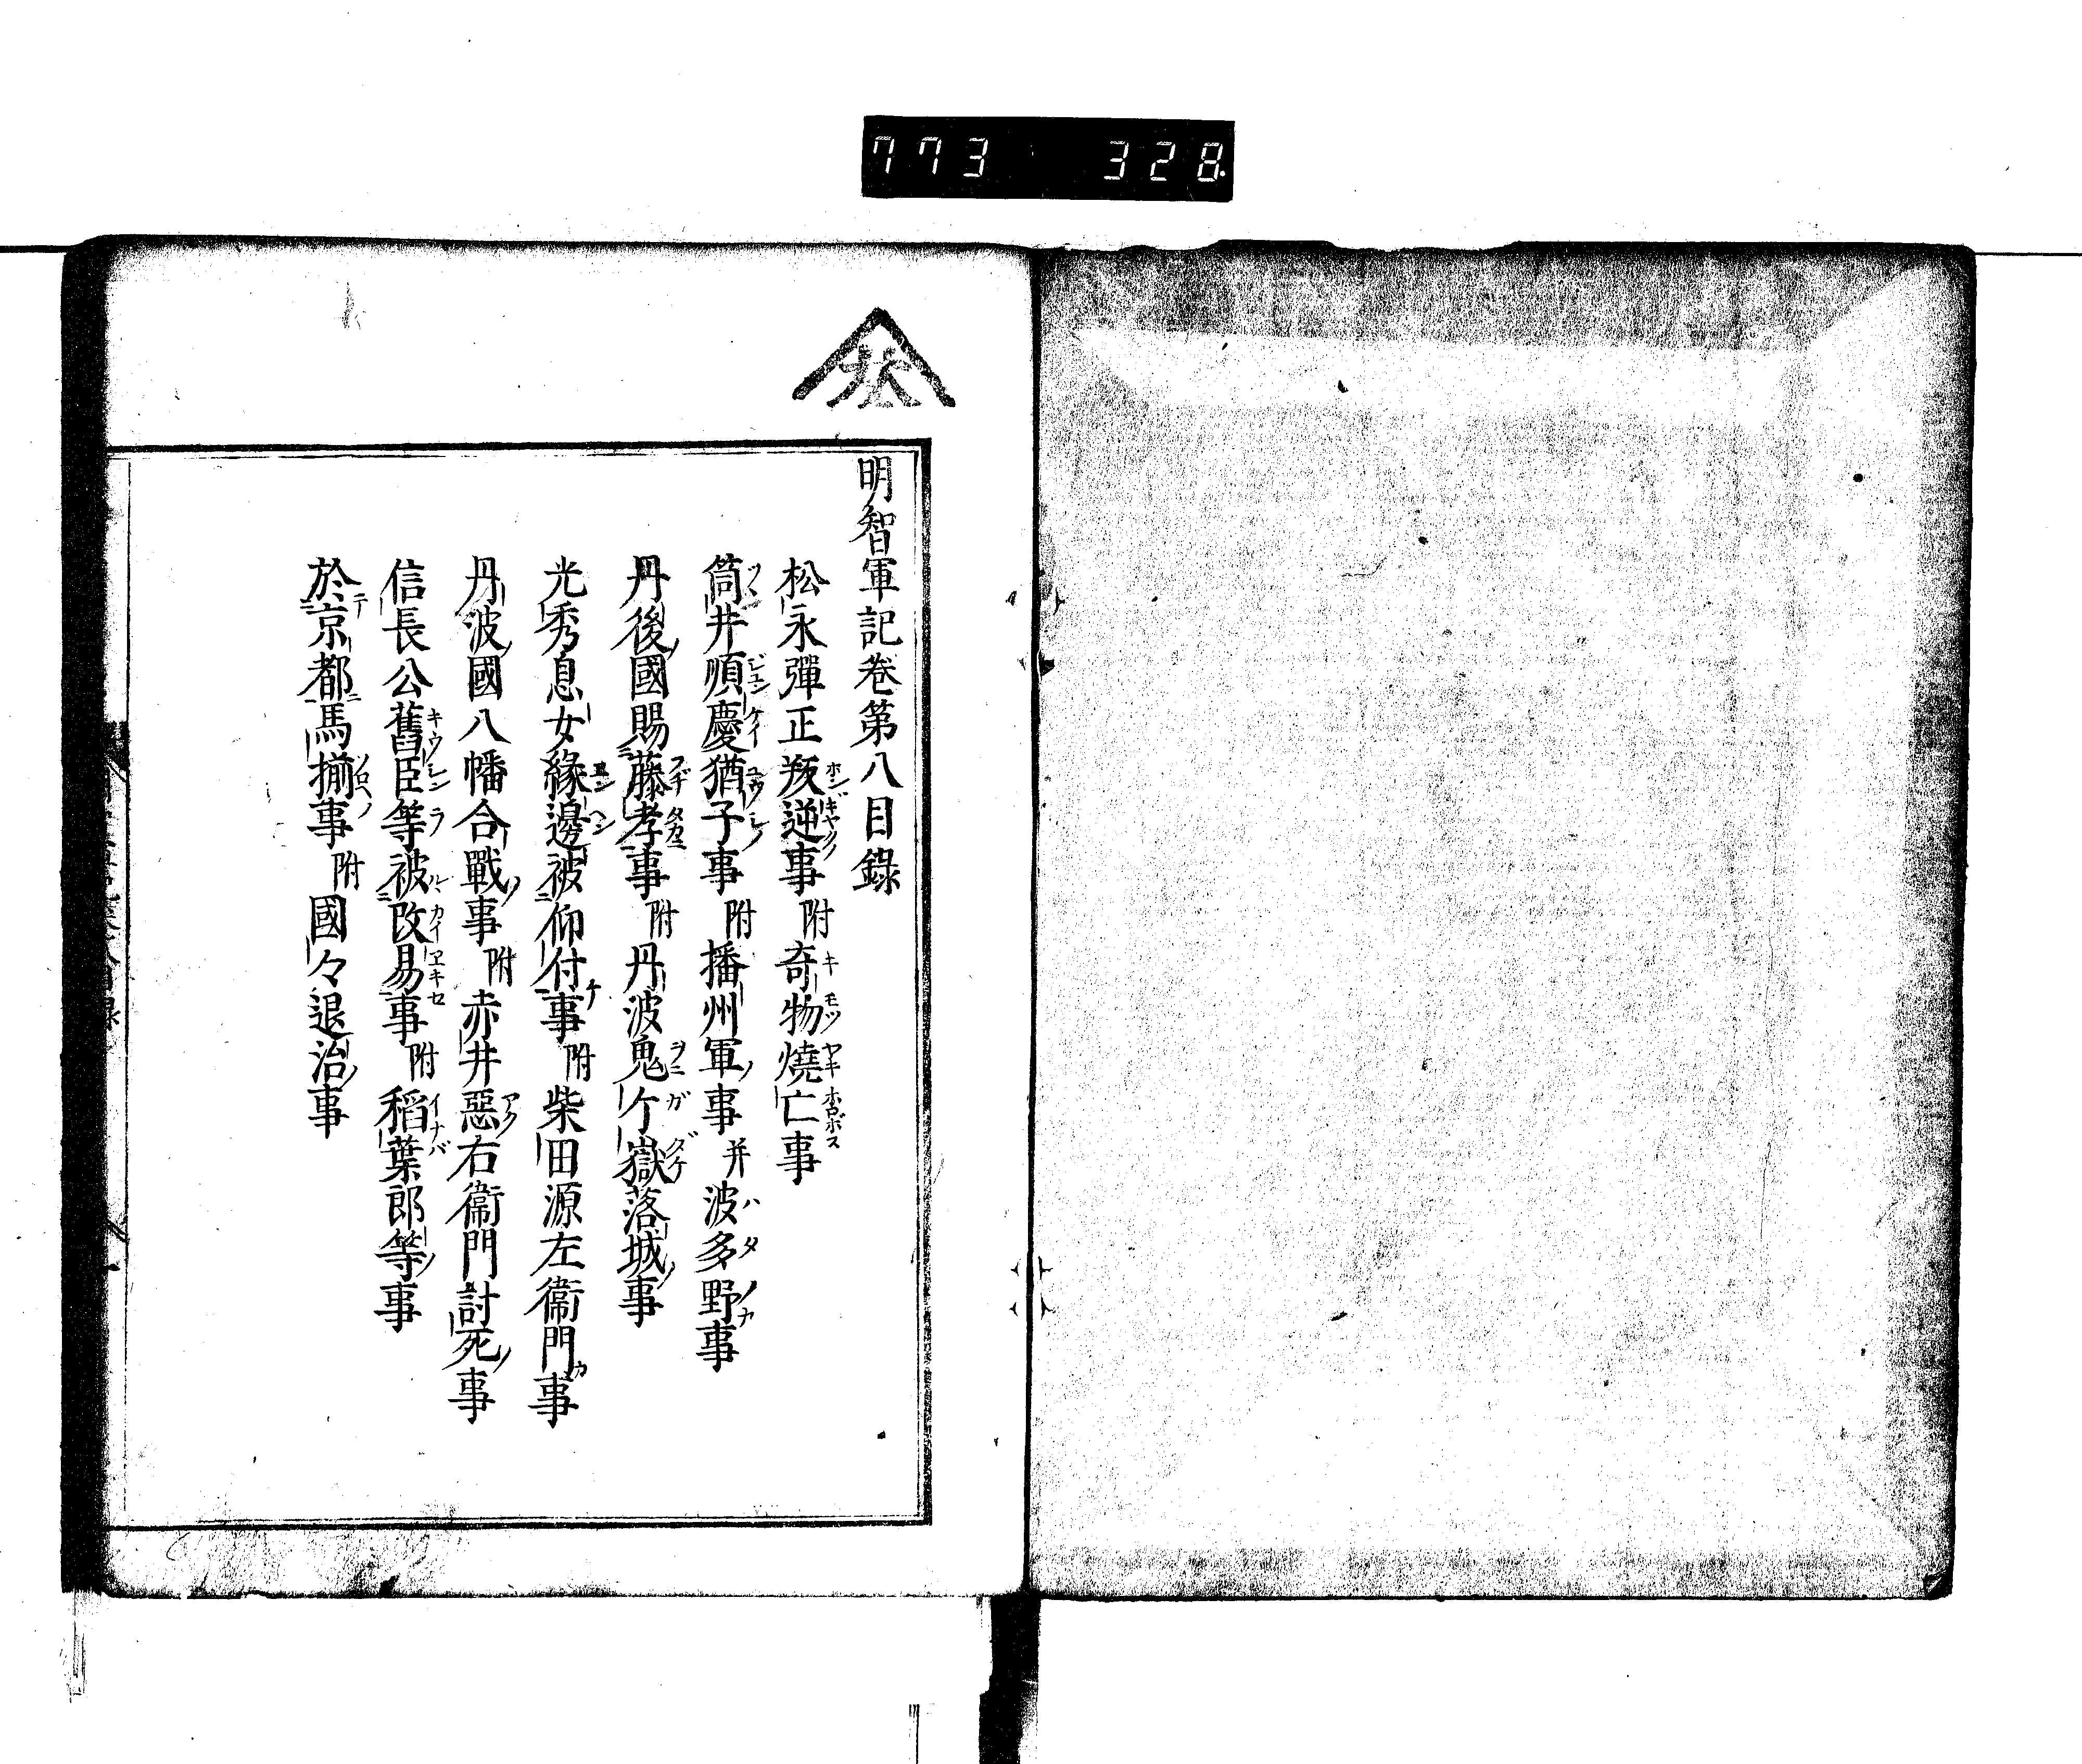 773 328
明智軍記卷第八目錄
松永彈正叛逆事附奇物燒亡事
筒井順慶猶子事附播州軍事并波多野事
丹後國賜藤孝事附丹波鬼ケ嶽落城事
光秀息女緣邊被仰付事附柴田源左衞門事
丹波國八幡合戰事附赤井惡右衞門討死事
信長公舊臣等被改易事附稻葉郎等事
於京都馬揃事附國々退治事